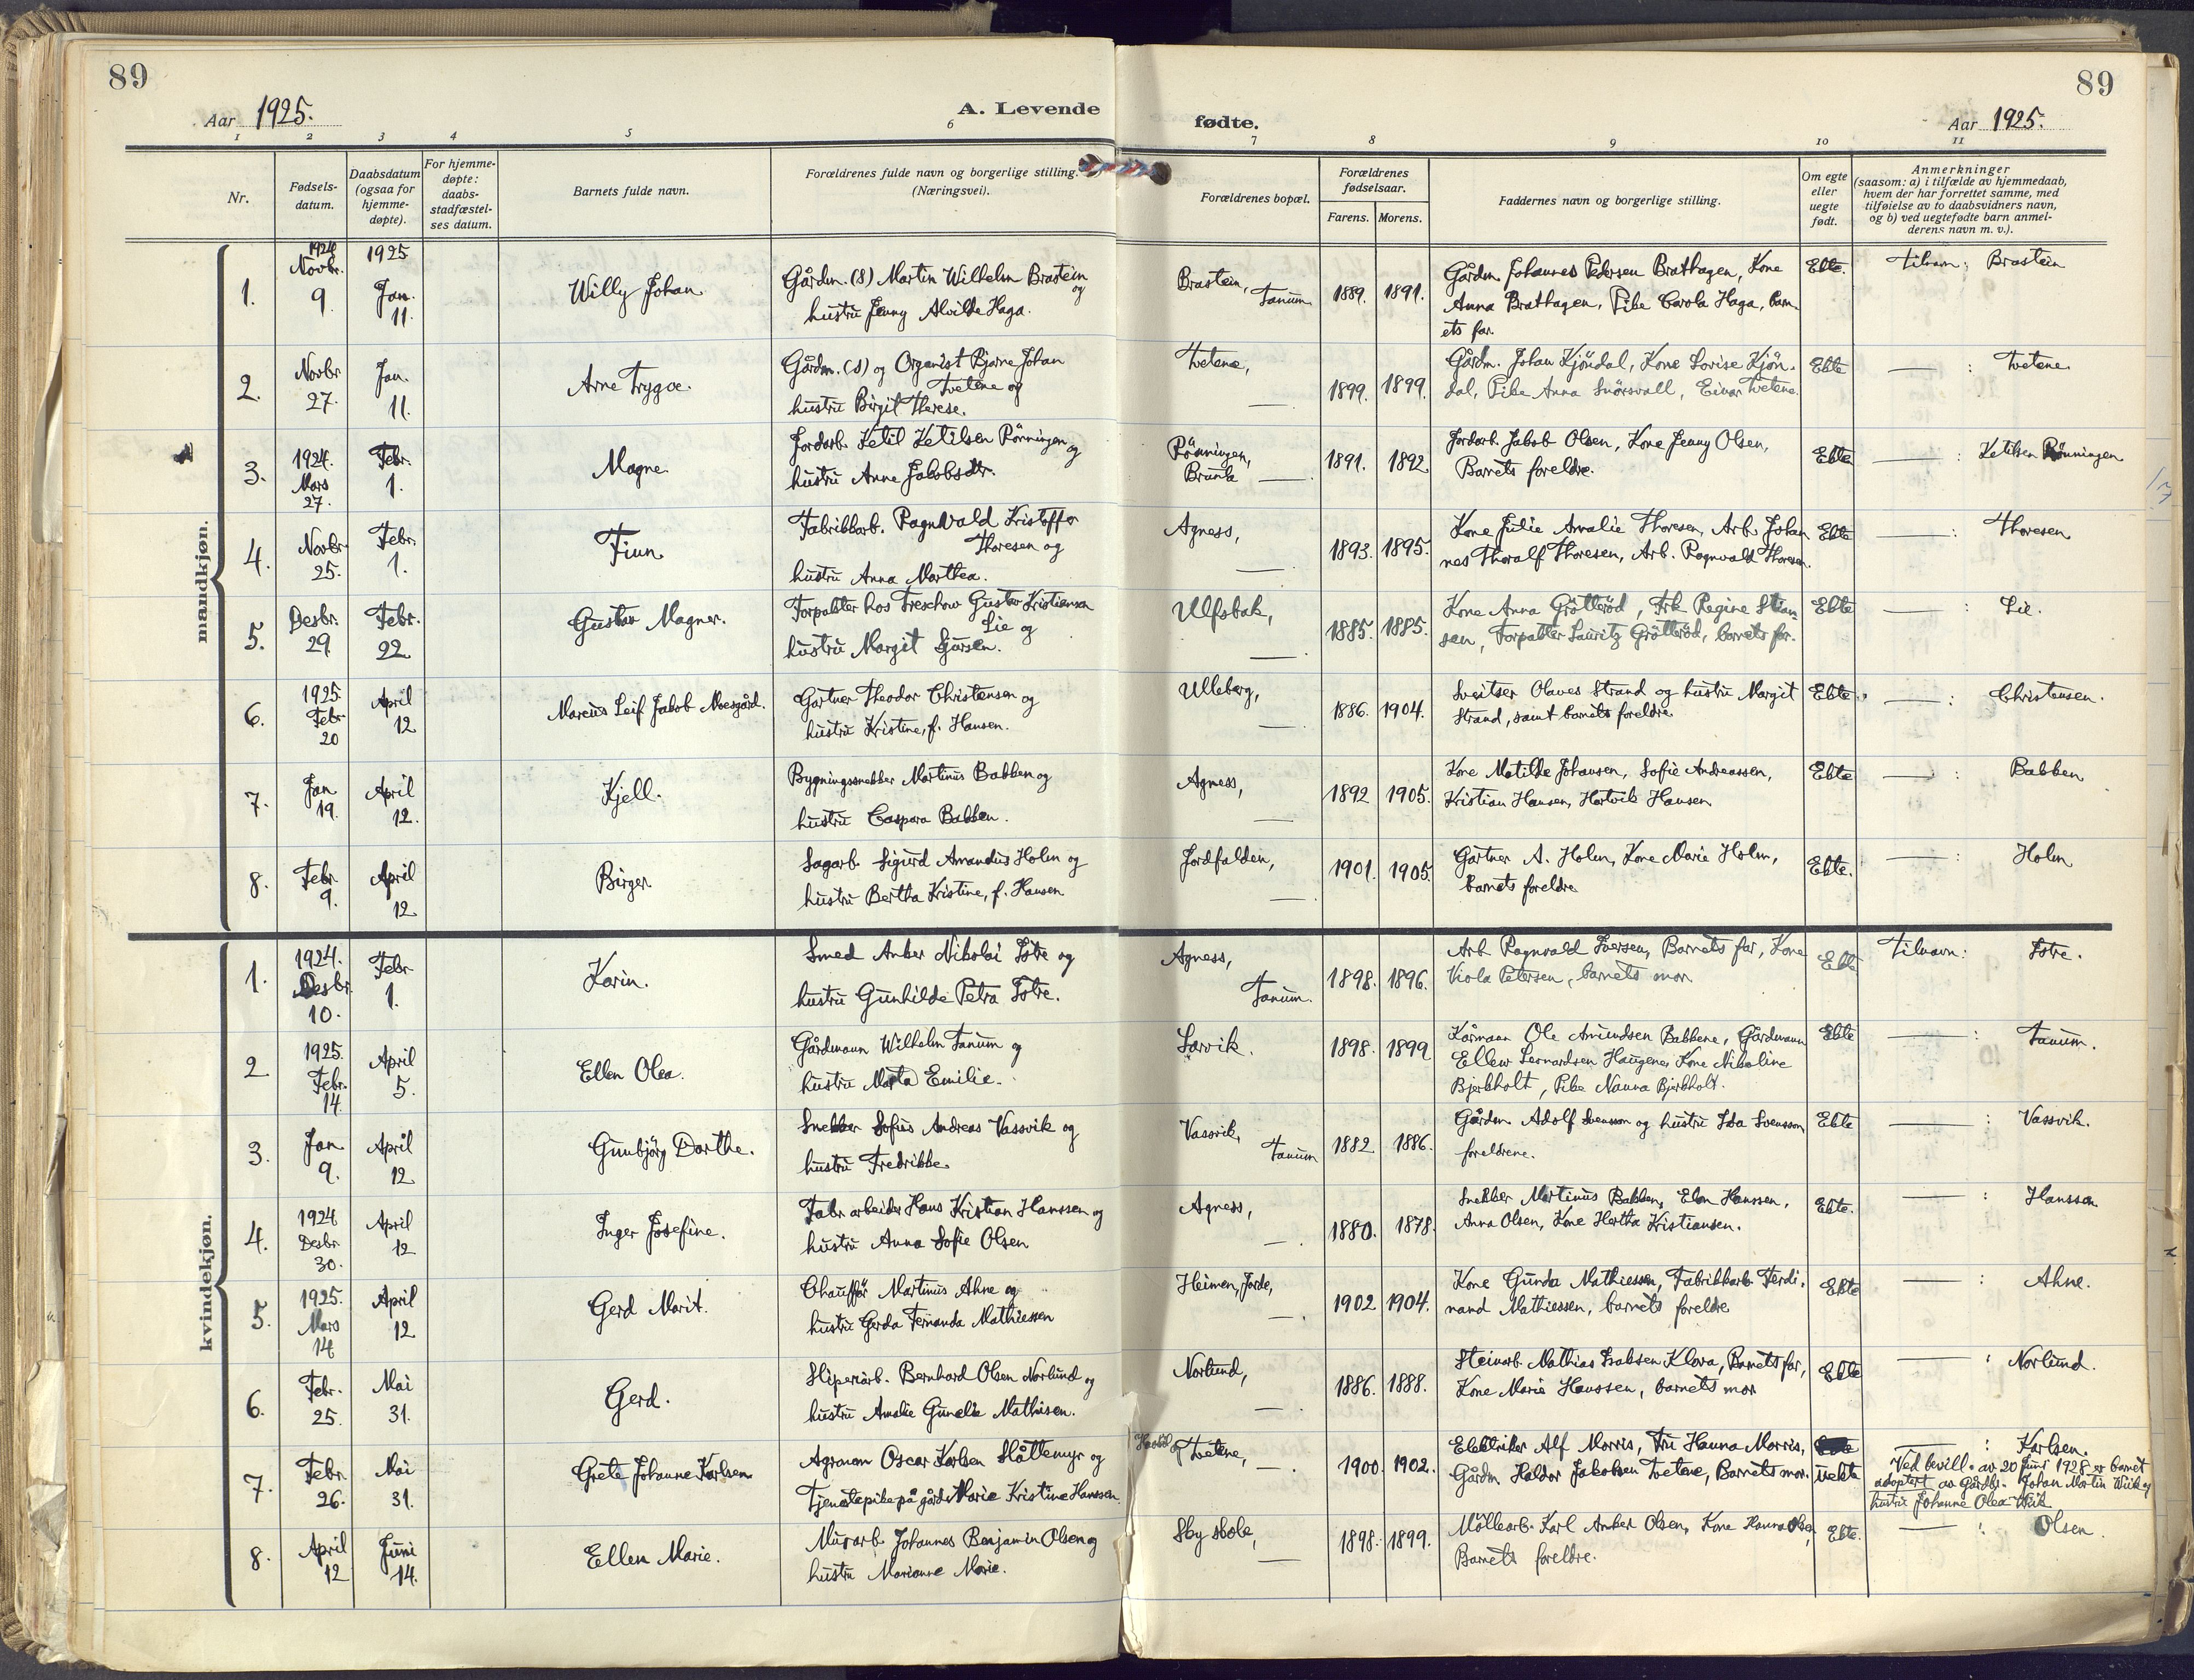 89
89
Aar 1925.
A. Levende fødte.
Aar 1925.
1 2 3 4 5 6 7 8 9 10 11
Nr.
Fødsels-
datum.
Daabsdatum
(ogsaa for
hjemme-
døpte).
For hjemme-
døpte:
daabs-
stadfæstel-
ses datum.
Barnets fulde navn.
Forældrenes fulde navn og borgerlige stilling.
(Næringsvei).
Forældrenes bopæl.
Forældrenes
fødselsaar.
Farens. Morens.
Faddernes navn og borgerlige stilling.
Om egte
eller
uegte
født.
Anmerkninger
(saasom: a) i tilfælde av hjemmedaab,
hvem der har forrettet samme, med
tilføielse av to daabsvidners navn,
og b) ved uegtefødte barn anmel-
derens navn m. v.).
mandkjøn.
1.
1924
Novbr.
9.
1925
Jan.
11.
Willy Johan
Gårdm. (S) Martin Wilhelm Brastein
og
hustru Jenny Alvilde Haga.
Brastein,
Tanum
1889. 1891.
Gårdm. Johannes Pedersen Brathagen, Kone
Anna Brathagen, Pike Carola Haga, barn-
ets far.
Ekte.
tilnavn: Brastein
2.
Novbr
27.
Jan.
11.
Arne Trygve.
Gårdm. (S) og Organist Bjarne Johan
Tvetene og
hustru Birgit Therese.
Tvetene,
—
1899. 1899.
Gårdm. Johan Kjøndal, Kone Lovise Kjøn-
dal, Pike Anna Snörsvall, Einar Tvetene.
Ekte
— : Tvetene
3.
1924.
Mars
27.
Febr.
1.
Magne
Jordarb. Ketil Ketilsen Rönningen
og
hustru Anne Jakobsdtr.
Rönningen,
Brunla —
1891. 1892
Jordarb. Jakob Olsen, Kone Jenny Olsen,
Barnets foreldre.
Ekte
— : Ketilsen Rönningen
4.
Novbr.
25.
Febr.
1.
Finn
Fabrikkarb. Ragnvald Kristoffer
Thoresen og
hustru Anna Marthea.
Agness,
—
1893. 1895.
Kone Julie Amalie Thoresen, Arb. Johan
nes Thoralf Thoresen, Arb. Ragnvald Thoresen.
Ekte
— : Thoresen
5.
Desbr.
29.
Febr.
22
Gustav Magner.
Forpakter hos Treschow Gustav Kristiansen
Lie og
hustru Margit Sjursen.
Ulfsbak,
—
1885. 1885.
Kone Anna Gröttеröd, Frk Regine Stian-
sen, Forpakter Lauritz Grötteröd, barnets far.
Ekte
— : Lie.
6.
1925
Febr.
20
April
12
Marcus Leif Jakob Moesgård.
Gartner Theodor Christensen og
hustru Kristine, f. Hansen.
Ulleberg,
—
1886. 1904.
Sveitser Olaves Strand og hustru Margit
Strand, samt barnets foreldre.
Ekte.
— : Christensen.
7.
Jan
19.
April
12.
Kjell.
Bygningssnekker Martinus Bakken og
hustru Caspara Bakken.
Agness,
—
1892 1905.
Kone Matilde Johansen, Sofie Andreassen,
Kristian Hansen, Hartvik Hansen
Ekte
— : Bakken
8.
Febr
9.
April
12
Birger
Sagarb. Sigurd Amandus Holm og
hustru Bertha Kristine, f. Hansen
Jordfalden,
—
1901. 1905.
Gartner A. Holm, Kone Marie Holm,
barnets foreldre
Ekte.
— : Holm
kvindekjøn.
1.
1924.
Desbr.
10.
Febr
1.
Karin.
Smed Anker Nikolai Istre og
hustru Gunhilde Petra Istre.
Agness,
Tanum.
1898. 1896.
Arb Ragnvald Iversen, Barnets far, Kone
Viola Petersen, barnets mor.
Ekte
Tilnavn: Istre.
2
1925.
Febr.
14.
April
5.
Ellen Olea.
Gårdmann Wilhelm Tanum og
hustru Marta Emilie.
Larvik.
1898. 1899
Kårmann Ole Amundsen Bakkene, Gårdmann
Ellew Leonardsen Haugene, Kone Nikoline
Bjerkholt, Pike Nanna Bjerkholt.
Ekte
— : Tanum.
3.
Jan
9.
April
12
Gunbjörg Dorthe.
Snekker Sofus Andreas Vassvik og
hustru Fredrikke.
Vassvik,
Tanum
1882 1886.
Gårdm. Adolf Svensson og hustru Ida Svensson
foreldrene.
Ekte
— : Vassvik.
4.
1924
Desbr.
30.
April
12
Inger Josefine.
Fabr arbeider Hans Kristian Hanssen og
hustru Anna Sofie Olsen
Agness,
—
1880. 1878.
Snekker Martinus Bakken, Elen Hanssen,
Anna Olsen, Kone Hertha Kristiansen.
Ekte.
— : Hanssen
5.
1925.
Mars
14
April
12
Gerd Marit.
Chauffør Martinus Ahne og
hustru Gerda Fernanda Mathiessen
Heimen, Jorde,
—
1902 1904.
Kone Gunda Mathiessen, Fabrikkarb. Ferdi-
nand Mathiessen, barnets foreldre
Ekte
— : Ahne.
6.
Febr.
25.
Mai
31.
Gerd.
Sliperiarb. Bernhard Olsen Norlund og
hustru Amalie Gunelie Mathisen.
Norlund,
—
1886. 1888.
Steinarb. Mathias Isaksen Klova, Barnets far,
Kone Marie Hanssen, barnets mor
Ekte
— : Norlund.
7.
Febr.
26.
Mai
31.
Grete Johanne Karlsen
Agronom Oscar Karlsen Slåttemyr og
Tjenestepike på gård Marie Kristine Hanssen.
Tvetene,
—
1900. 1902.
Elektriker Alf Morris, Fru Hanna Morris,
Gårdm Haldor Jakobsen Tvetene, Barnets mor.
uekte
— : Karlsen.
Ved bevill. av 20 Juni 1928 er barnet
adoptert av Gårdbr. Johan Martin Wiik og
hustru Johanne Olea Wiik
8.
April
12
Juni
14.
Ellen Marie.
Murarb. Johannes Benjamin Olsen og
hustru Marianne Marie.
Sky skole,
—
1898. 1899.
Möllearb. Karl Anker Olsen, Kone Hanna Olsen,
Barnets foreldre.
Ekte.
— : Olsen.